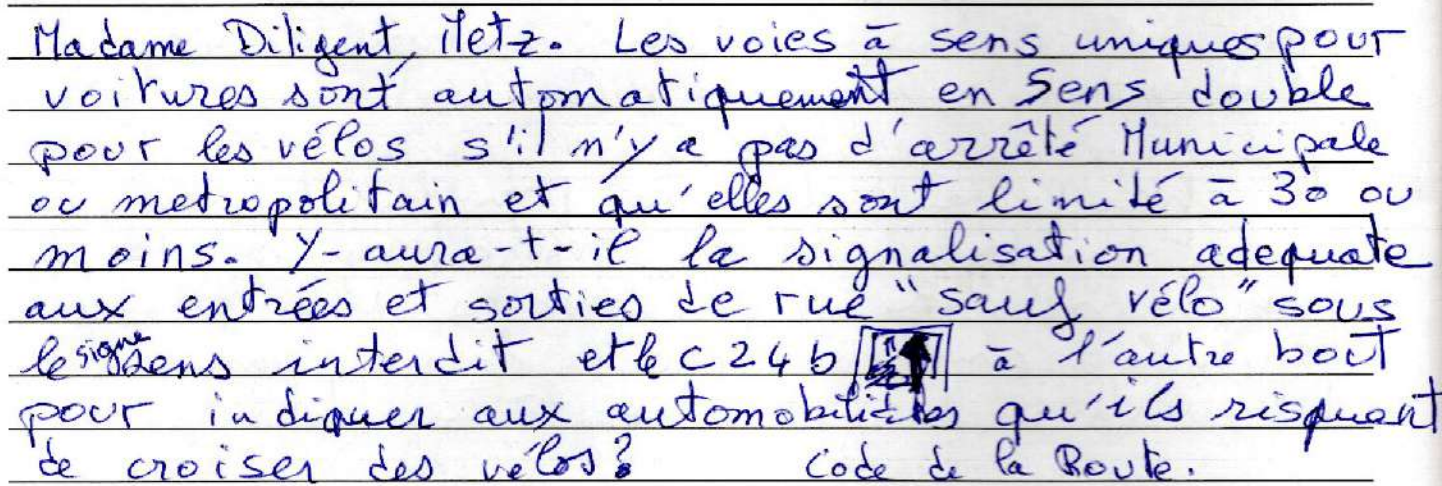 Madame Diligent, Metz. Les voies à sens uniques pour
voitures sont automatiquement en sens double
pour les vélos s'il n'y a pas d'arrêté Municipale
ou metropolitain et qu'elles sont limité à 30 ou
moins. Y-aura-t-il la signalisation adequate
aux entrées et sorties de rue "sauf vélo" sous
le signe sens interdit et le C24b à l'autre bout
pour indiquer aux automobilistes qu'ils risquent
de croiser des vélos? Code de la Route.